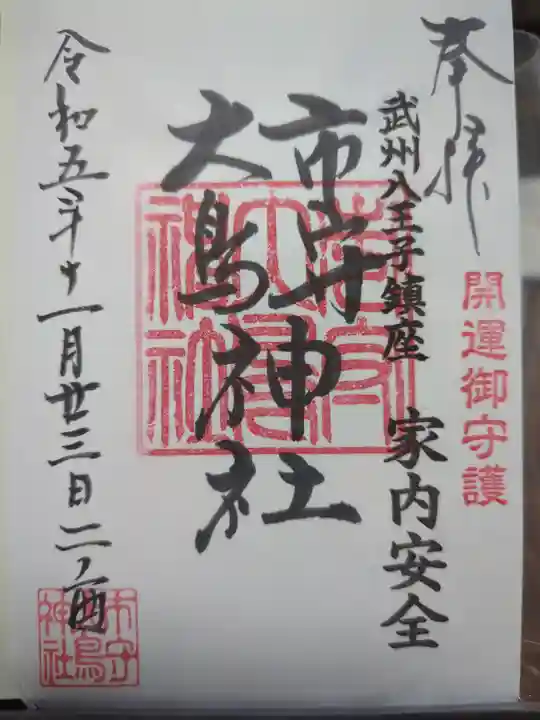 奉拝
開運御守護
武州八王子鎮座 家内安全
市守神社
大鳥神社
令和五年十一月廿三日二ノ酉
市守
大鳥
神社